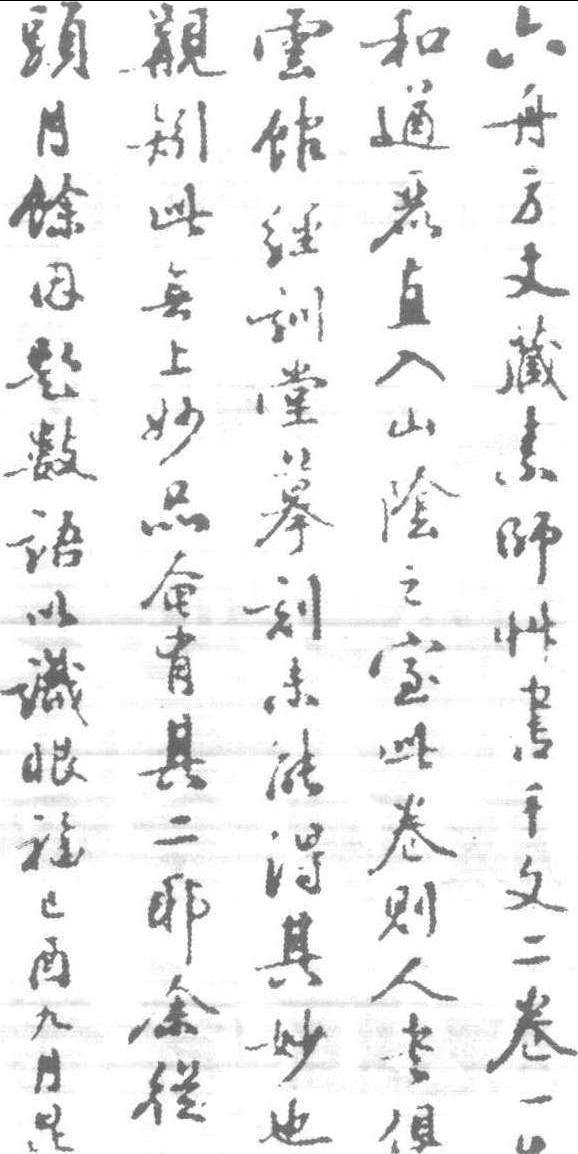 六舟方丈藏素師艸書千文二卷一
和遒麗直入山陰之室此卷則人書俱
雲館經訓堂摹刻未能得其妙也
觀矧此無上妙品而有其二耶余從
頭月餘因題數語以識眼福己酉九月